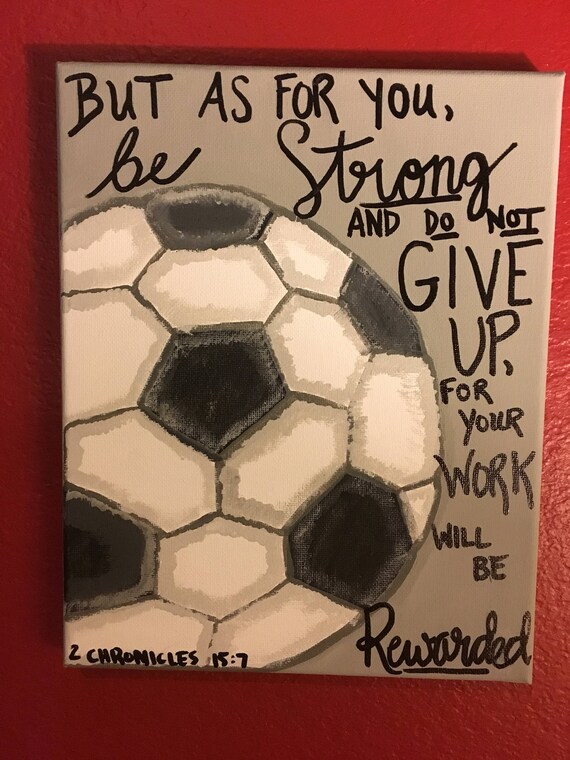 BUT AS FOR YOU,
be Strong
AND DO NOT
GIVE
UP,
FOR
YOUR
WORK
WILL
BE
Rewarded
2 CHRONICLES 15:7